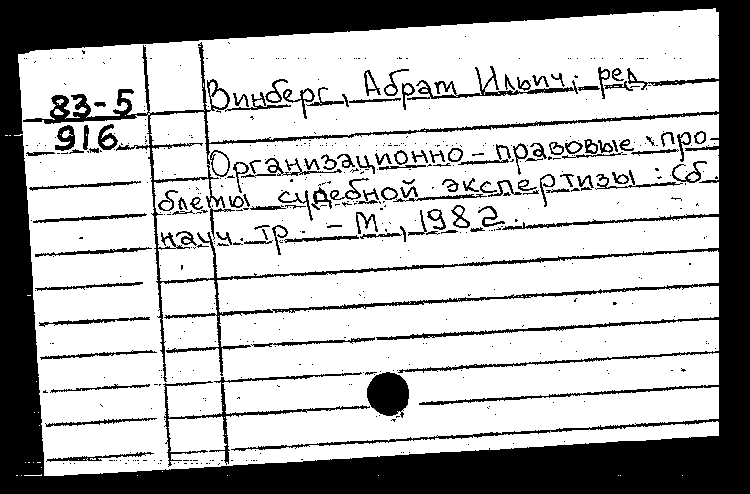 83-5
916
Винберг, Абрам Ильич, ред.
Организационно-правовые про-
блемы судебной экспертизы: Сб.
науч. тр. - М., 1982.